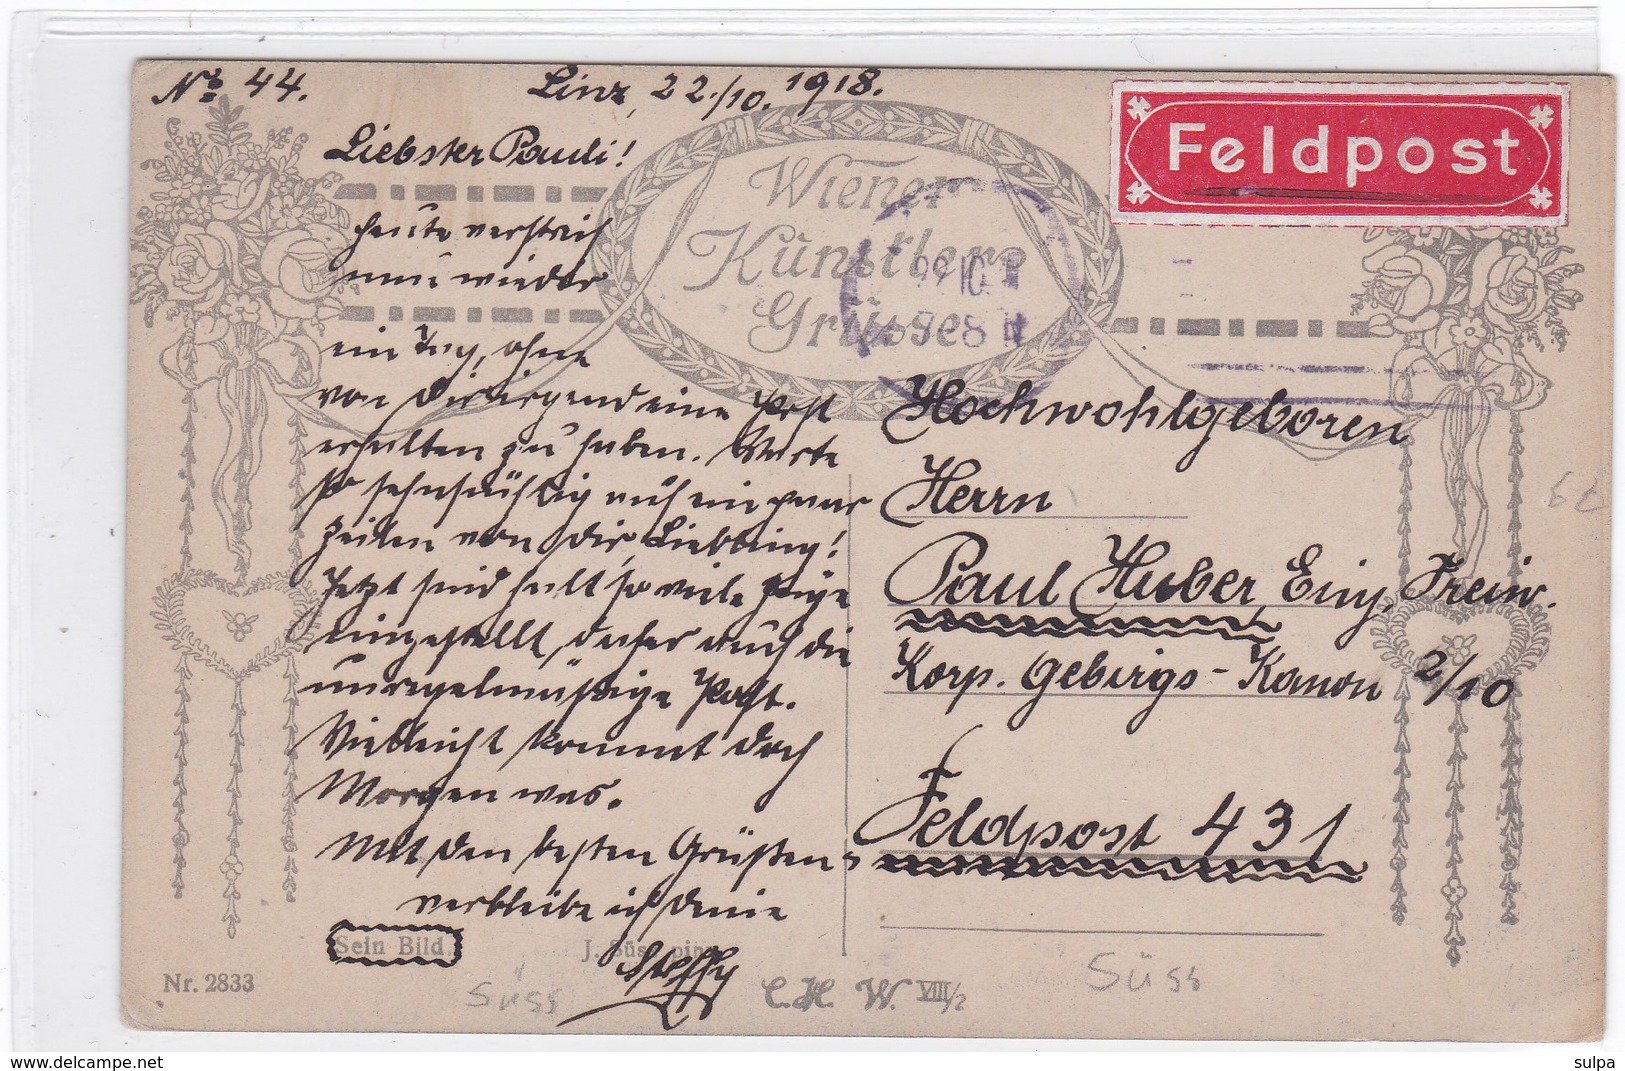 No 44.
Linz, 22./10. 1918.
Feldpost
Liebster Paudi!
Wiener
Künstler
Grüsse
heute verstrich
nun wieder
ein Tag, ohne
von dir irgend eine Post
erhalten zu haben. Warte
so sehnsüchtig auf ein paar
Zeilen von dir, Liebling!
Jetzt sind halt so viele Züge
eingestellt, daher auch die
unregelmäßige Post.
Vielleicht kommt doch
Morgen was.
Mit den besten Grüßen
verbleibe ich deine
Steffy
Hochwohlgeboren
Herrn
Paul Huber, Einj. Freiw.
Korp. Gebirgs-Kanon 2/10
Feldpost 431
Sein Bild.
J. Süss pinx.
Nr. 2833
Süss
C.H.W. VIII/2
Süss
sulpa